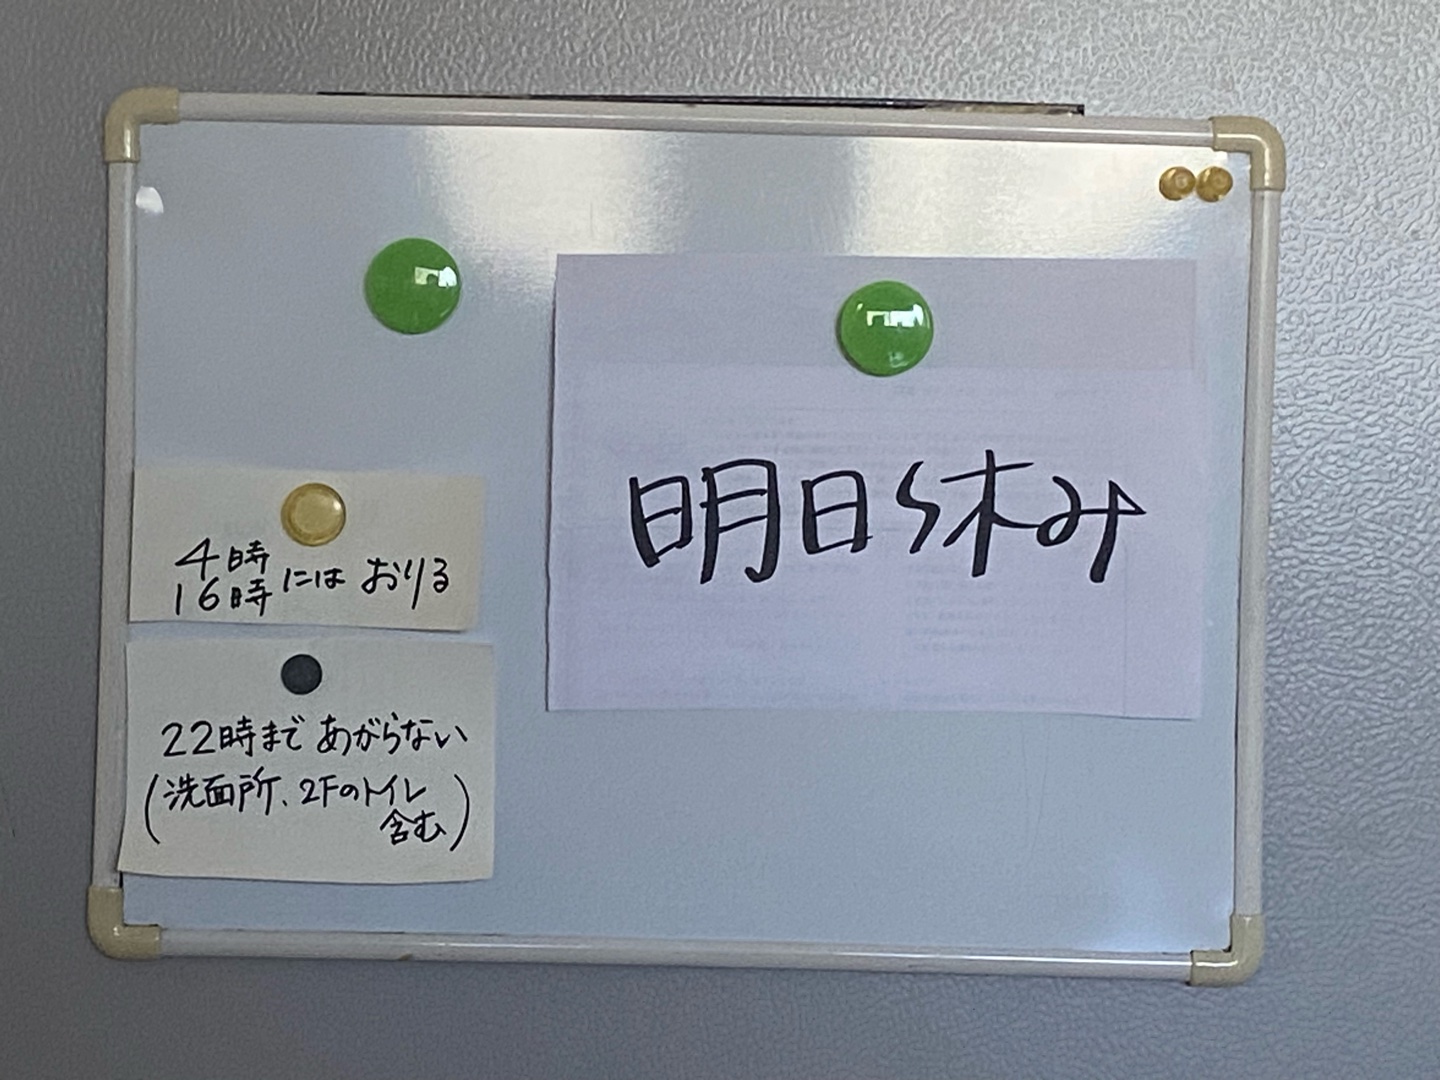 明日休み
4時
16時 には おりる
22時まで あがらない
(洗面所、2Fのトイレ
含む)